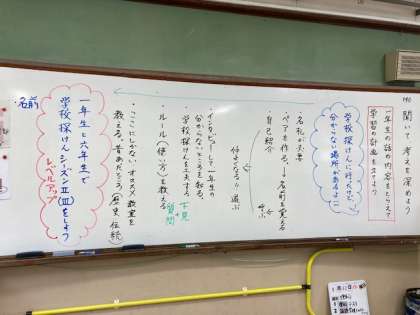 聞いて、考えを深めよう
一年生の話の内容をとらえて
学習の計画を立てよう
学校探けんに行ったけど、
分からない場所があるよ
・名札が大事
・ペアを作る。→名前を覚える
・自己紹介
呼ぶ
仲よくなる
遊ぶ
・インタビューして一年生の
分からないところを知る。
・学校探けんを工夫する
下見
質問
・ルール(使い方)を教える
・ここにしかない、オススメ教室を
教える。昔あだちろう(歴史、伝統)
一年生と六年生で
学校探けんシーズンⅡ(Ⅲ)をしよう
レベルアップ
・名前